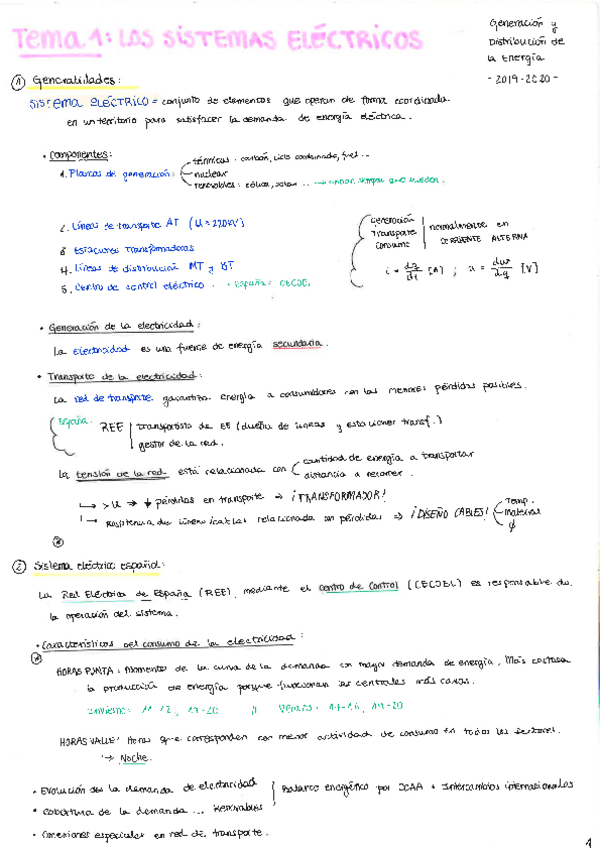 Tema 1: LOS SISTEMAS ELÉCTRICOS
Generación y
Distribución de
la Energía
- 2019-2020 -
1) Generalidades:
SISTEMA ELÉCTRICO = conjunto de elementos que operan de forma coordinada
en un territorio para satisfacer la demanda de energía eléctrica.
• Componentes:
1. Plantas de generación:
- térmicas: carbón, ciclo combinado, fuel...
- nuclear
- renovables: eólica, solar... → siempre que pueden.
2. Líneas de transporte AT (U = 220kV)
3. Estaciones Transformadoras
4. Líneas de distribución MT y BT
5. Centro de control eléctrico. · España: CECOEL
Generación
Transporte
Consumo
normalmente en
CORRIENTE ALTERNA
i = dq/dt [A] ; u = dw/dq [V]
• Generación de la electricidad:
La electricidad es una fuente de energía secundaria.
• Transporte de la electricidad:
La red de transporte garantiza energía a consumidores con las menores pérdidas posibles.
España: REE
transportista de EE (dueño de líneas y estaciones transf.)
gestor de la red.
La tensión de la red está relacionada con
cantidad de energía a transportar
distancia a recorrer.
↳ > U ⇒ ↓ pérdidas en transporte ⇒ ¡TRANSFORMADOR!
↳ Resistencia de líneas/cables relacionada con pérdidas ⇒ ¡DISEÑO CABLES!
Temp.
Material
ϕ
2) Sistema eléctrico español:
La Red Eléctrica de España (REE), mediante el Centro de Control (CECOEL) es responsable de
la operación del sistema.
• Características del consumo de la electricidad:
HORAS PUNTA: Momentos de la curva de la demanda con mayor demanda de energía. Más costosa
la producción de energía porque funcionan las centrales más caras.
Invierno: 11-12, 19-20 // Verano: 19-20
HORAS VALLE: Horas que corresponden con menor actividad de consumo en todos los sectores.
↳ Noche.
• Evolución de la demanda de electricidad
• Cobertura de la demanda... Renovables
Balance energético por CCAA + Intercambios internacionales
• Conexiones especiales en red de transporte.
1